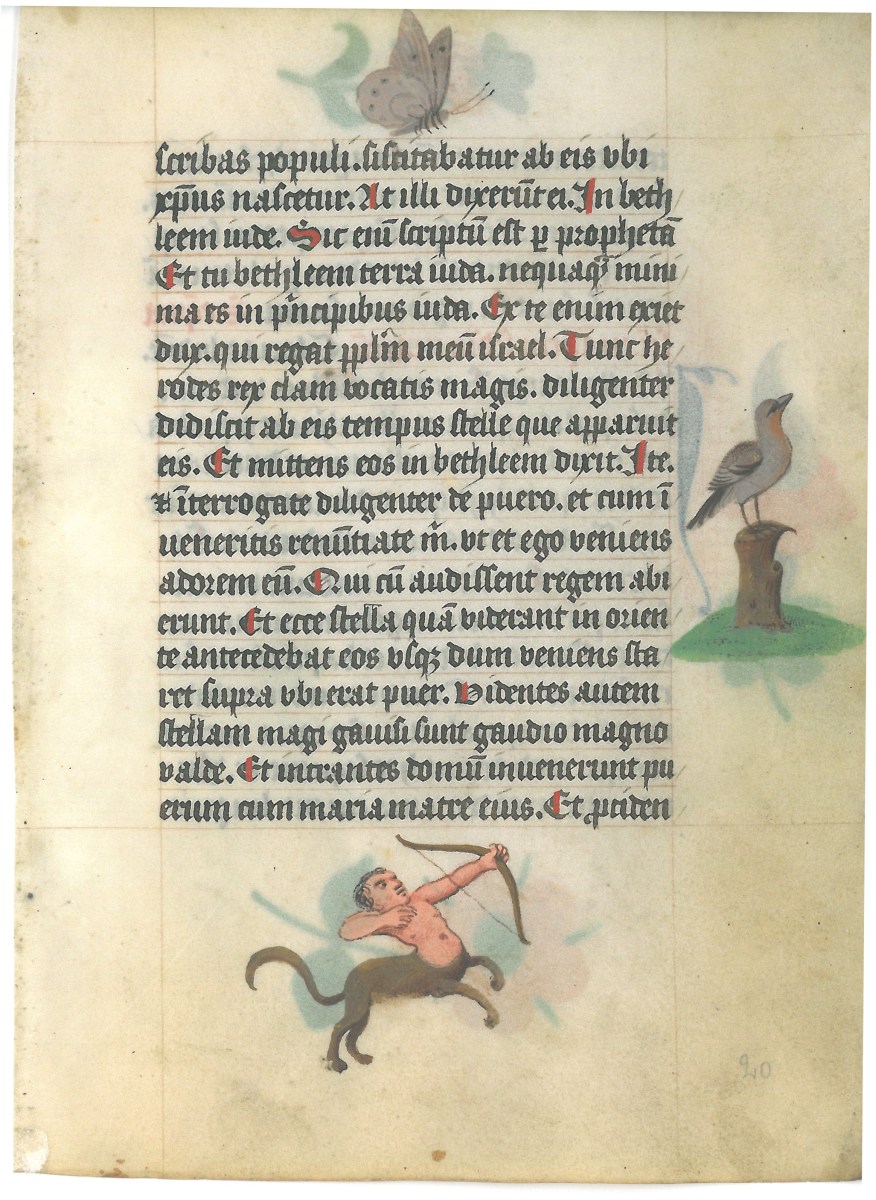 scribas populi. siscitabatur ab eis vbi
xp̄us nascetur. At illi dixerūt ei. In beth
leem iude. Sic eni̅ scriptū est ꝑ prophetā
Et tu bethleem terra iuda. nequaq̄ mini
ma es in p̄ncipibus iuda. Ex te enim exiet
dux. qui regat pplm̄ meū israel. Tunc he
rodes rex clam vocatis magis. diligenter
didiscit ab eis tempus stelle que apparuit
eis. Et mittens eos in bethleem dixit. Ite.
⁊ īterrogate diligenter de puero. et cum ī
ueneritis renūtiate m̄. vt et ego veniens
adorem eū. Qui cū audissent regem abi
erunt. Et ecce stella quā viderant in orien
te antecedebat eos vsqꝫ dum veniens sta
ret supra vbi erat puer. Videntes autem
stellam magi gauisi sunt gaudio magno
valde. Et intrantes domū inuenerunt pu
erum cum maria matre eius. Et ꝓciden
20